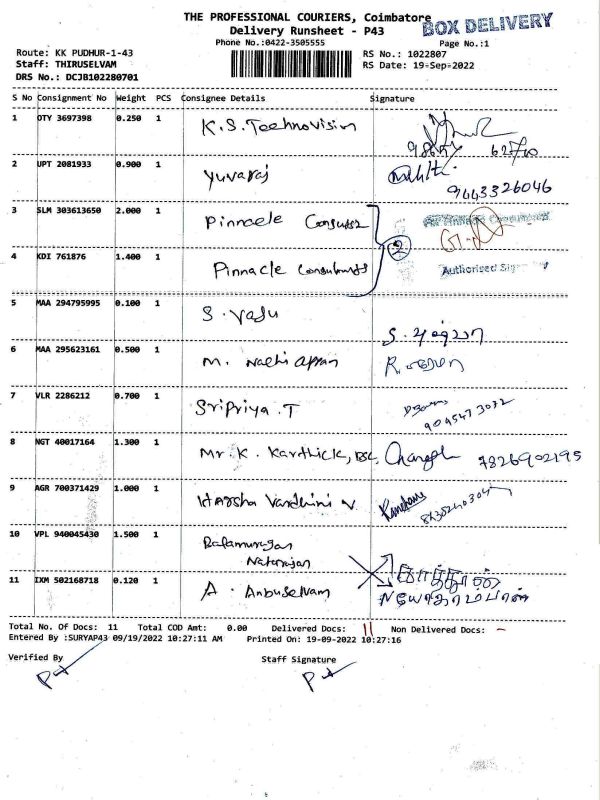 THE PROFESSIONAL COURIERS, Coimbatore
BOX DELIVERY
Delivery Runsheet - P43
Phone No.:0422-3505555
Page No.:1
Route: KK PUDHUR-1-43
RS No.: 1022807
Staff: THIRUSELVAM
RS Date: 19-Sep-2022
DRS No.: DCJB102280701
S No Consignment No Weight PCS Consignee Details Signature
1 OTY 3697398 0.250 1 K.S. Technovision
2 UPT 2081933 0.900 1 Yuvaraj 9443326046
3 SLM 303613650 2.000 1 Pinnacle
4 KDI 761876 1.400 1 Pinnacle Consultants 2
Authorised
5 MAA 294795995 0.100 1 S. Vasu
6 MAA 295623161 0.500 1 M. Nachiappan
7 VLR 2286212 0.700 1 Sripriya.T
8 NGT 40017164 1.300 1 Mr. K. Karthick, BSc, 7826902195
9 AGR 700371429 1.000 1 Harsha Vardhini V
10 VPL 940045430 1.500 1 Balamurugan
Natarajan
11 IXM 502168718 0.120 1 A. Anbuselvam
Total No. Of Docs: 11 Total COD Amt: 0.00 Delivered Docs: 11 Non Delivered Docs: -
Entered By :SURYAP43 09/19/2022 10:27:11 AM Printed On: 19-09-2022 10:27:16
Verified By Staff Signature